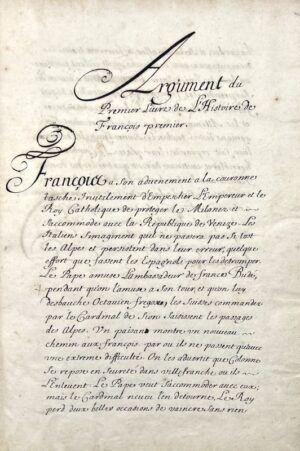 Argument du
Premier Livre de L'Histoire de
François premier.
François a son advenement a la couronne
tasche Inutilement d'Empescher L'Empereur et le
Roy Catholique de proteger le Milanez et
s'accommode avec la Republique de Venise. Les
Italiens s'imaginent qu'il ne passera pas si tost
les Alpes et persistent dans leur erreur, quelque
effort que fassent les Espagnols pour les detromper.
Le Pape amuse L'ambassadeur de france Budé,
pendant qu'on l'amuse a son tour, et qu'on luy
desbauche Octavien fregose. les Suisses commandez
par le Cardinal de Sion saisissent les passages
des Alpes. Un paisan montre un nouveau
chemin aux françois par ou ils ne passent qu'avec
une extreme difficulté. On les advertit que Colonne
se repose en seureté dans villefranche ou ils
L'enlevent. Le Pape veut s'accommoder avec eux,
mais le Cardinal neveu l'en detourne. Le Roy
perd deux belles occasions de vaincre sans rien